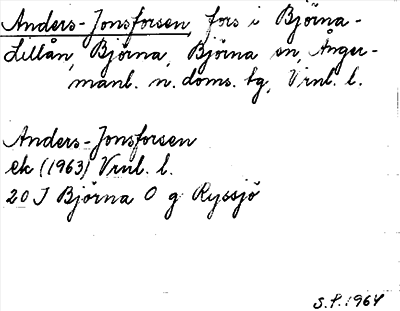 Anders-Jonsforsen, fors i Björna-
Lillån, Björna, Björna sn, Ånger-
manl. n. doms. tg, Vrnl. l.
Anders-Jonsforsen
ek (1963) Vrnl. l.
20 J Björna O g Ryssjö
S.F. 1964